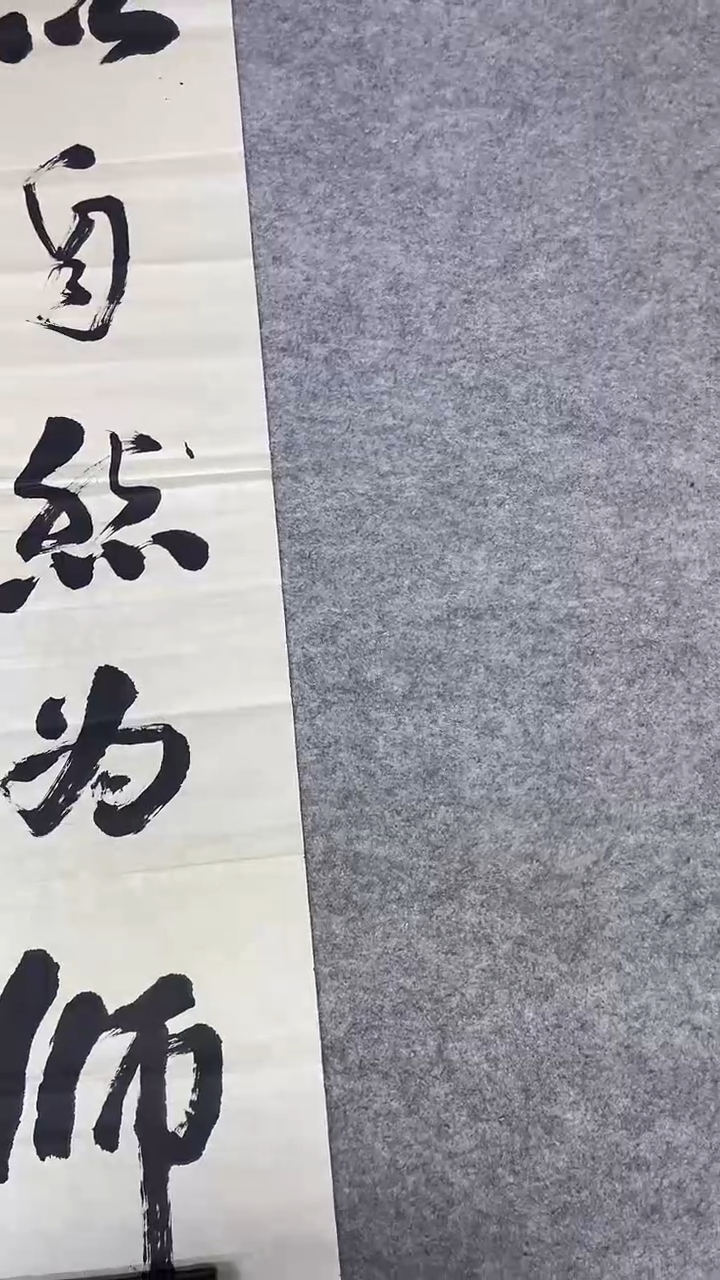 以自然为师